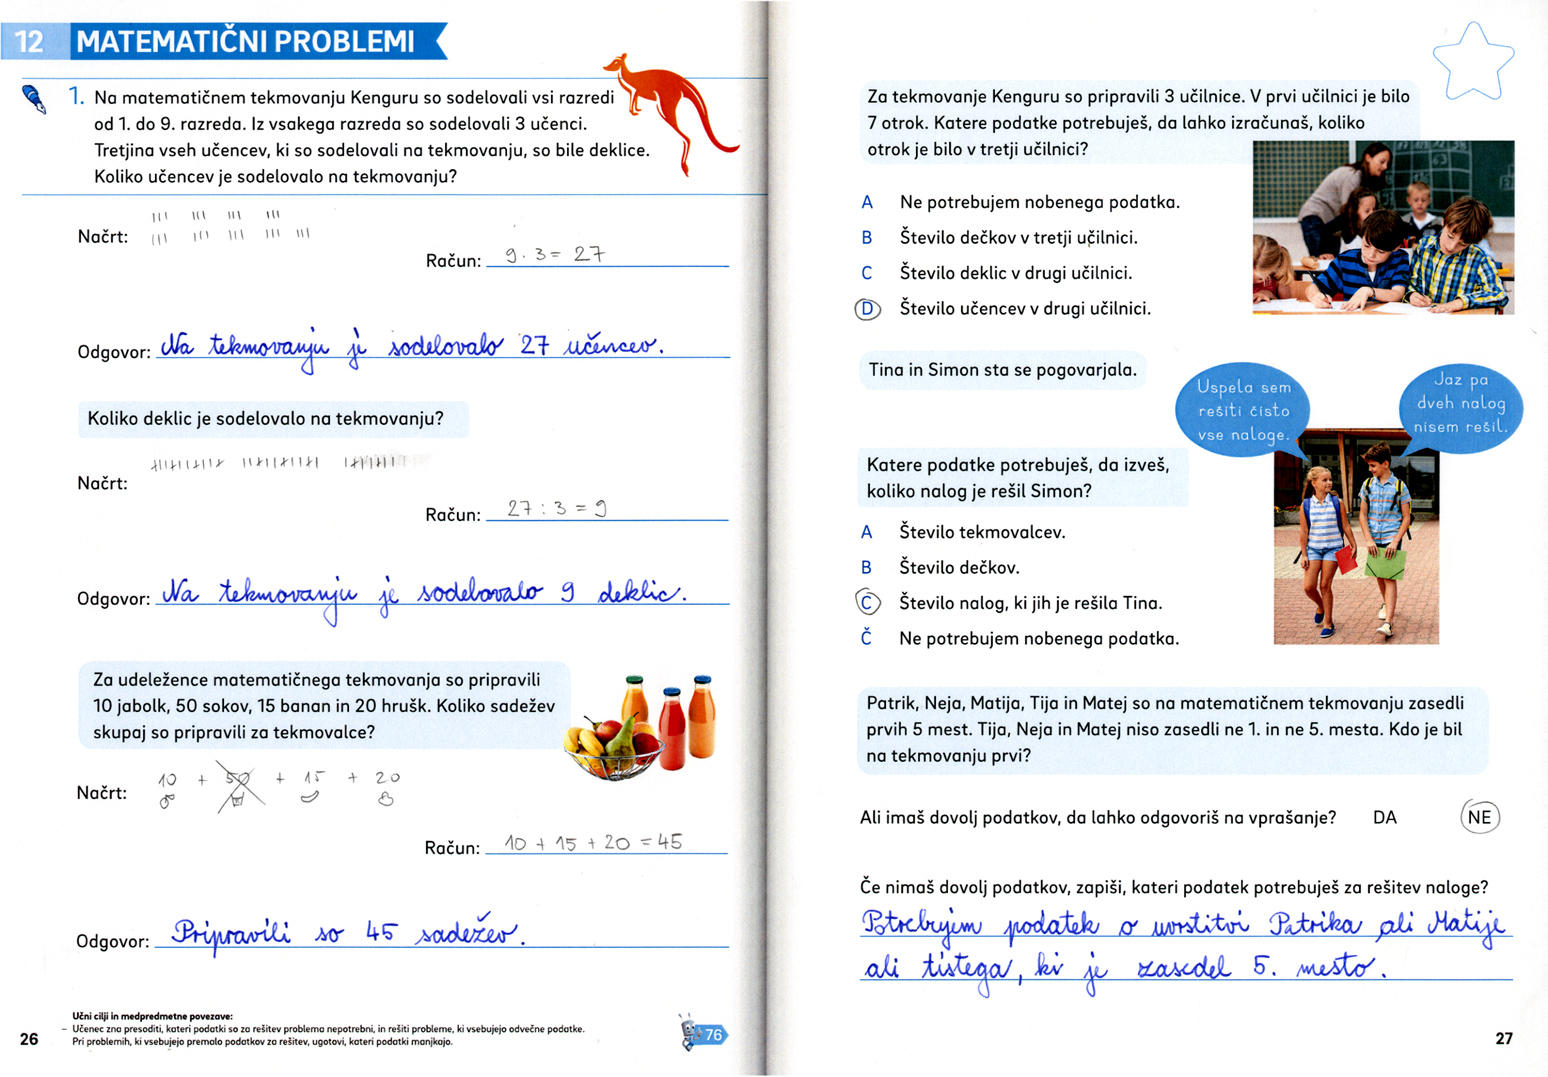 12 MATEMATIČNI PROBLEMI
1. Na matematičnem tekmovanju Kenguru so sodelovali vsi razredi
od 1. do 9. razreda. Iz vsakega razreda so sodelovali 3 učenci.
Tretjina vseh učencev, ki so sodelovali na tekmovanju, so bile deklice.
Koliko učencev je sodelovalo na tekmovanju?
Načrt:
Račun: 9 · 3 = 27
Odgovor: Na tekmovanju je sodelovalo 27 učencev.
Koliko deklic je sodelovalo na tekmovanju?
Načrt:
Račun: 27 : 3 = 9
Odgovor: Na tekmovanju je sodelovalo 9 deklic.
Za udeležence matematičnega tekmovanja so pripravili
10 jabolk, 50 sokov, 15 banan in 20 hrušk. Koliko sadežev
skupaj so pripravili za tekmovalce?
Načrt: 10 + 50 + 15 + 20
Račun: 10 + 15 + 20 = 45
Odgovor: Pripravili so 45 sadežev.
Učni cilji in medpredmetne povezave:
– Učenec zna presoditi, kateri podatki so za rešitev problema nepotrebni, in rešiti probleme, ki vsebujejo odvečne podatke.
Pri problemih, ki vsebujejo premalo podatkov za rešitev, ugotovi, kateri podatki manjkajo.
26
76
Za tekmovanje Kenguru so pripravili 3 učilnice. V prvi učilnici je bilo
7 otrok. Katere podatke potrebuješ, da lahko izračunaš, koliko
otrok je bilo v tretji učilnici?
A Ne potrebujem nobenega podatka.
B Število dečkov v tretji učilnici.
C Število deklic v drugi učilnici.
D Število učencev v drugi učilnici.
Tina in Simon sta se pogovarjala.
Uspela sem
rešiti čisto
vse naloge.
Jaz pa
dveh nalog
nisem rešil.
Katere podatke potrebuješ, da izveš,
koliko nalog je rešil Simon?
A Število tekmovalcev.
B Število dečkov.
C Število nalog, ki jih je rešila Tina.
Č Ne potrebujem nobenega podatka.
Patrik, Neja, Matija, Tija in Matej so na matematičnem tekmovanju zasedli
prvih 5 mest. Tija, Neja in Matej niso zasedli ne 1. in ne 5. mesta. Kdo je bil
na tekmovanju prvi?
Ali imaš dovolj podatkov, da lahko odgovoriš na vprašanje? DA NE
Če nimaš dovolj podatkov, zapiši, kateri podatek potrebuješ za rešitev naloge?
Potrebujem podatek o uvrstitvi Patrika ali Matije
ali tistega, ki je zasedel 5. mesto.
27